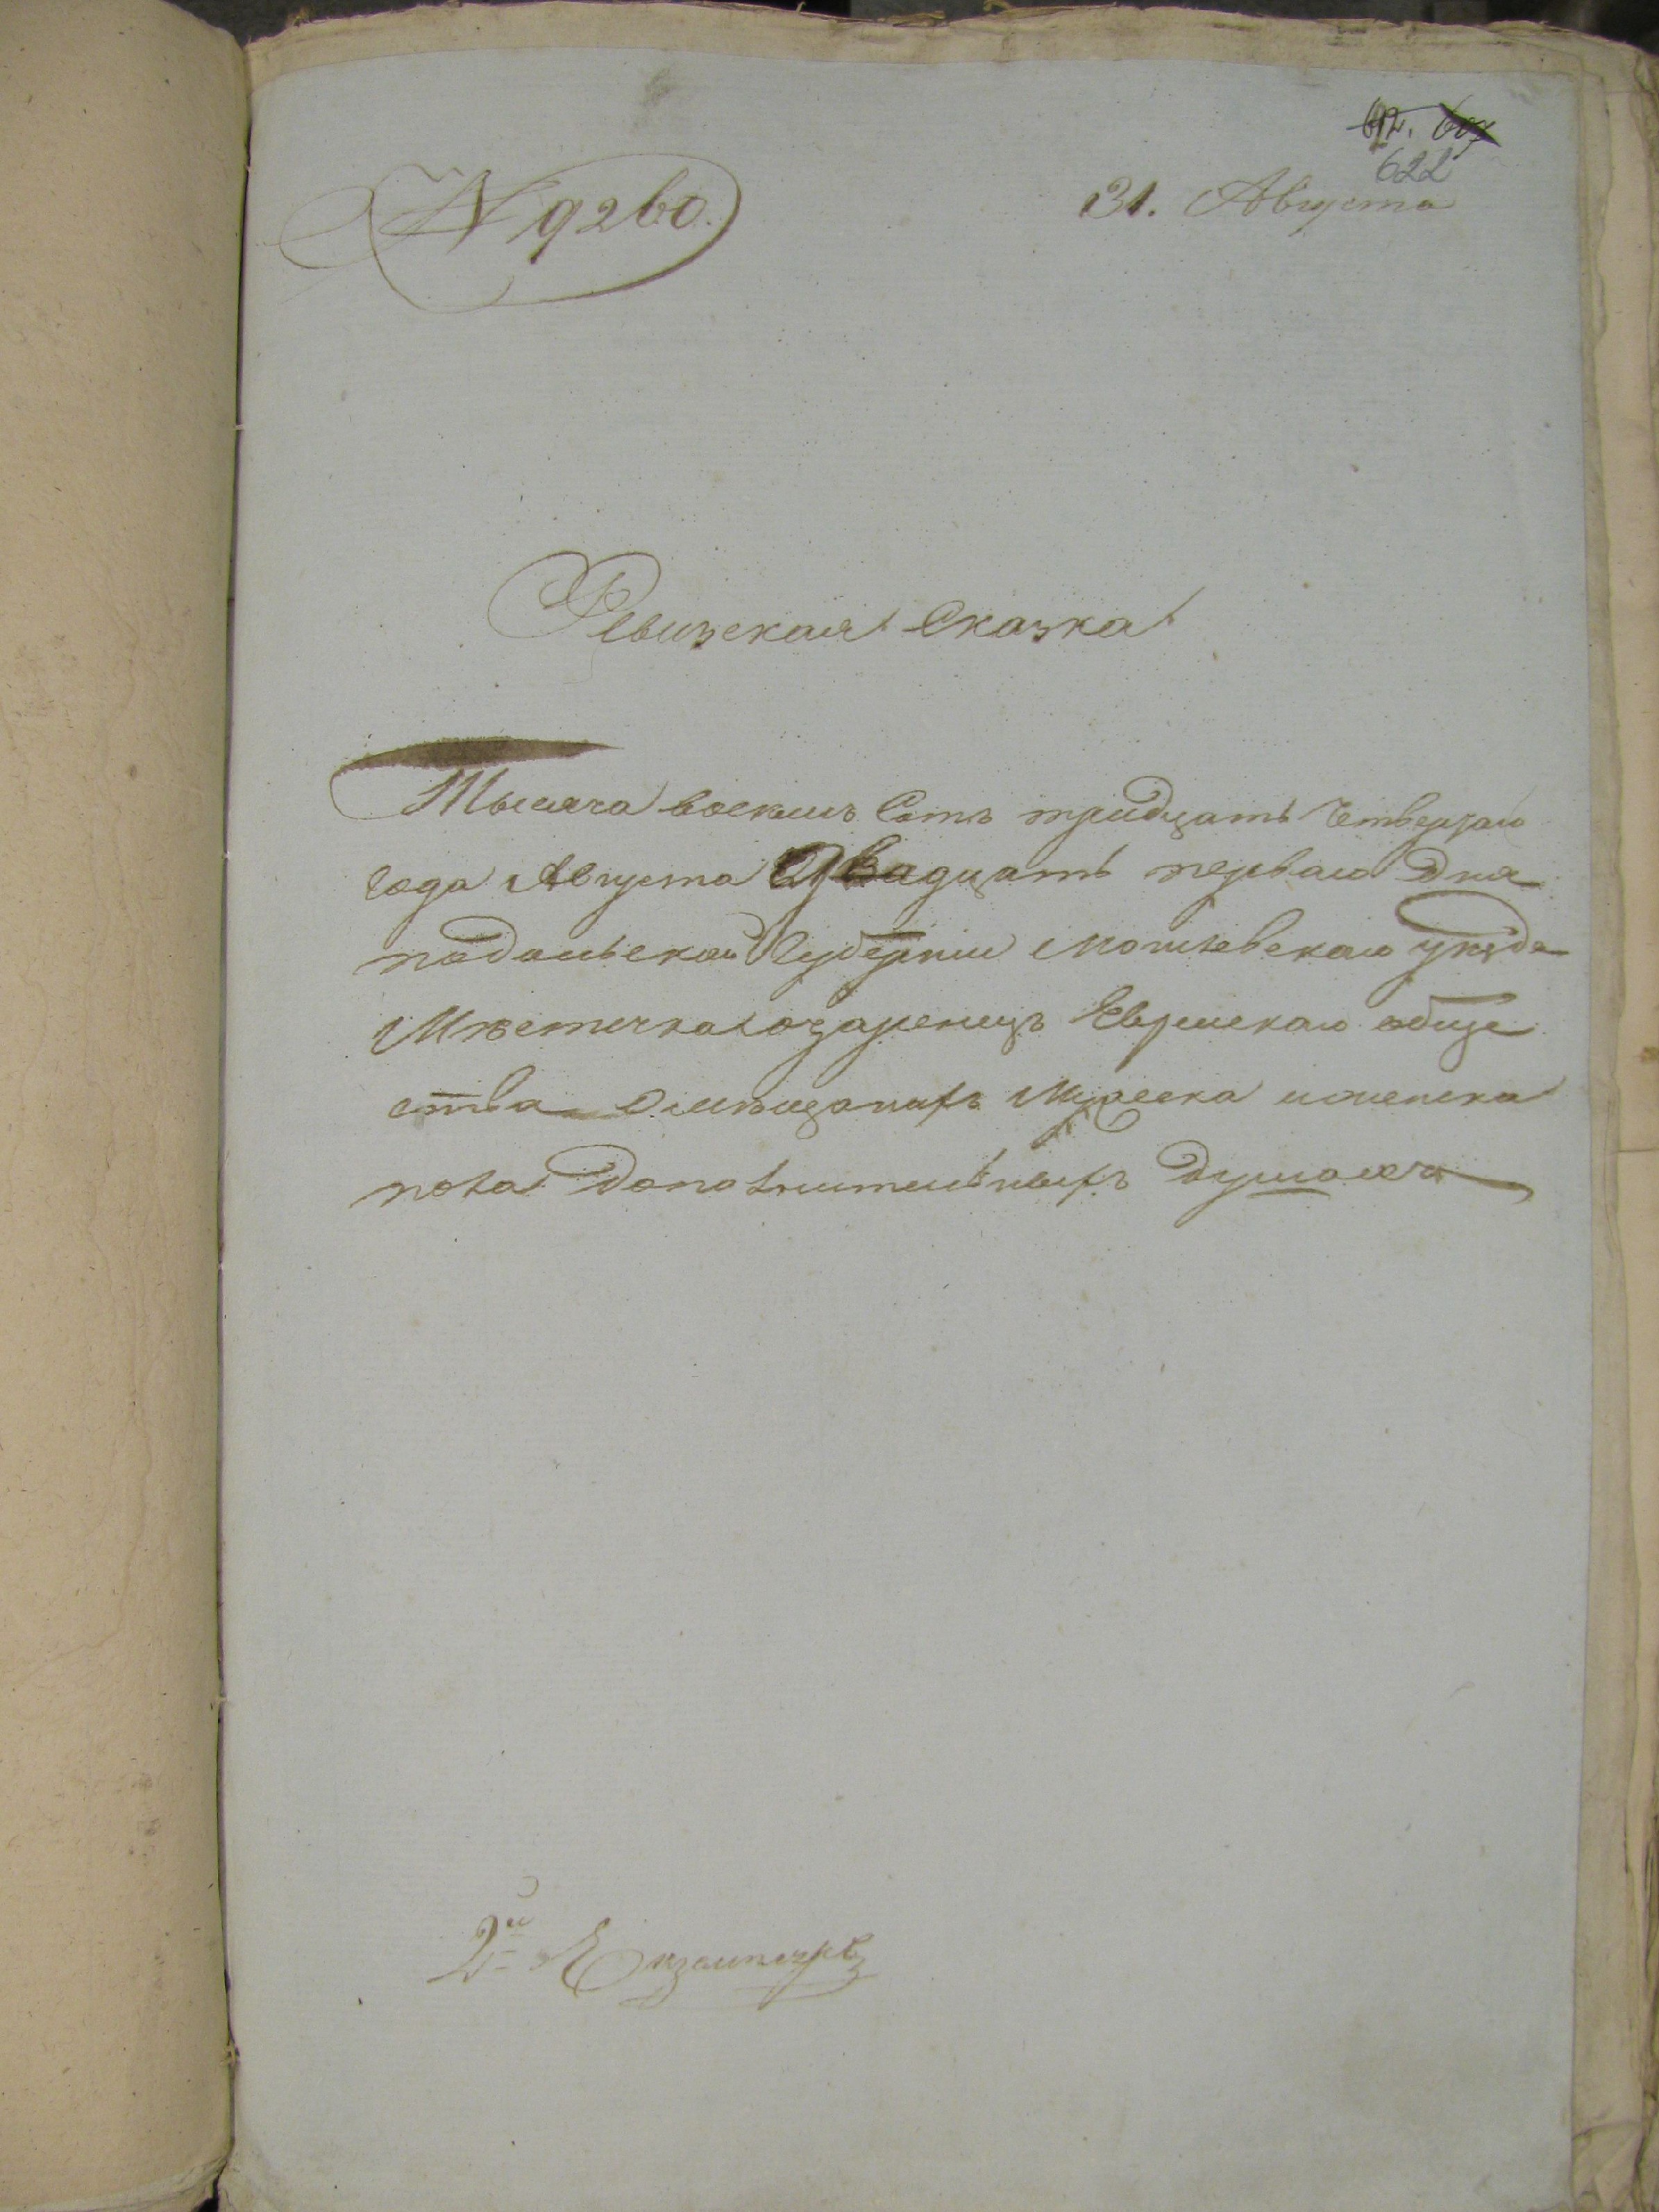 612. 607
622
N 9260.
31. Августа
Ревизская Сказка
Тысяча восемь Сотъ тридцать Четвертаго
года Августа Двадцать перваго Дня
подольской Губернии Могилевскаго уезда
Местечка озаренецъ Еврейскаго обще
ства о мещанахъ Мужеска и женска
пола дополнительныхъ душахъ
2й Екземпляръ